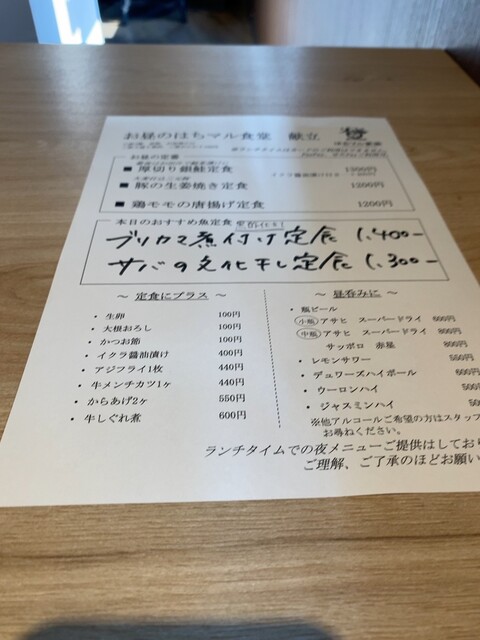 お昼のはちマル食堂 献立
お昼の定番
■ 厚切り銀鮭定食 1300円
イクラ醤油漬け付き
■ 豚の生姜焼き定食 1200円
■ 鶏モモの唐揚げ定食 1200円
本日のおすすめ魚定食
ブリカマ煮付け定食 1,400-
サバの文化干し定食 1,300-
～ 定食にプラス ～
・ 生卵 100円
・ 大根おろし 100円
・ かつお節 100円
・ イクラ醤油漬け 400円
・ アジフライ1枚 440円
・ 牛メンチカツ1ヶ 440円
・ からあげ2ヶ 550円
・ 牛しぐれ煮 600円
～ 昼呑みに ～
・ 瓶ビール
小瓶 アサヒ スーパードライ 600円
中瓶 アサヒ スーパードライ 800円
サッポロ 赤星 800円
・ レモンサワー 550円
・ デュワーズハイボール 600円
・ ウーロンハイ 500
・ ジャスミンハイ 50
※他アルコールご希望の方はスタッフ
お尋ねください。
ランチタイムでの夜メニューご提供はしており
ご理解、ご了承のほどお願い